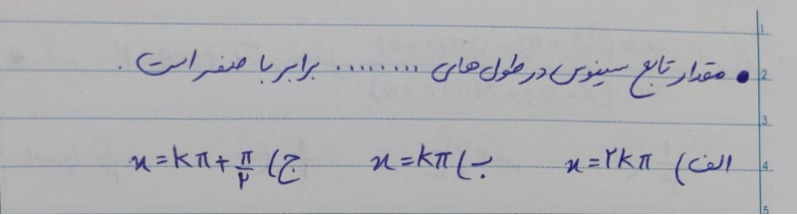 • مقدار تابع سینوس در طول‌های ........ برابر با صفر است.
الف) x=۲kπ ب) x=kπ ج) x=kπ+π/۲
1
2
3
4
5